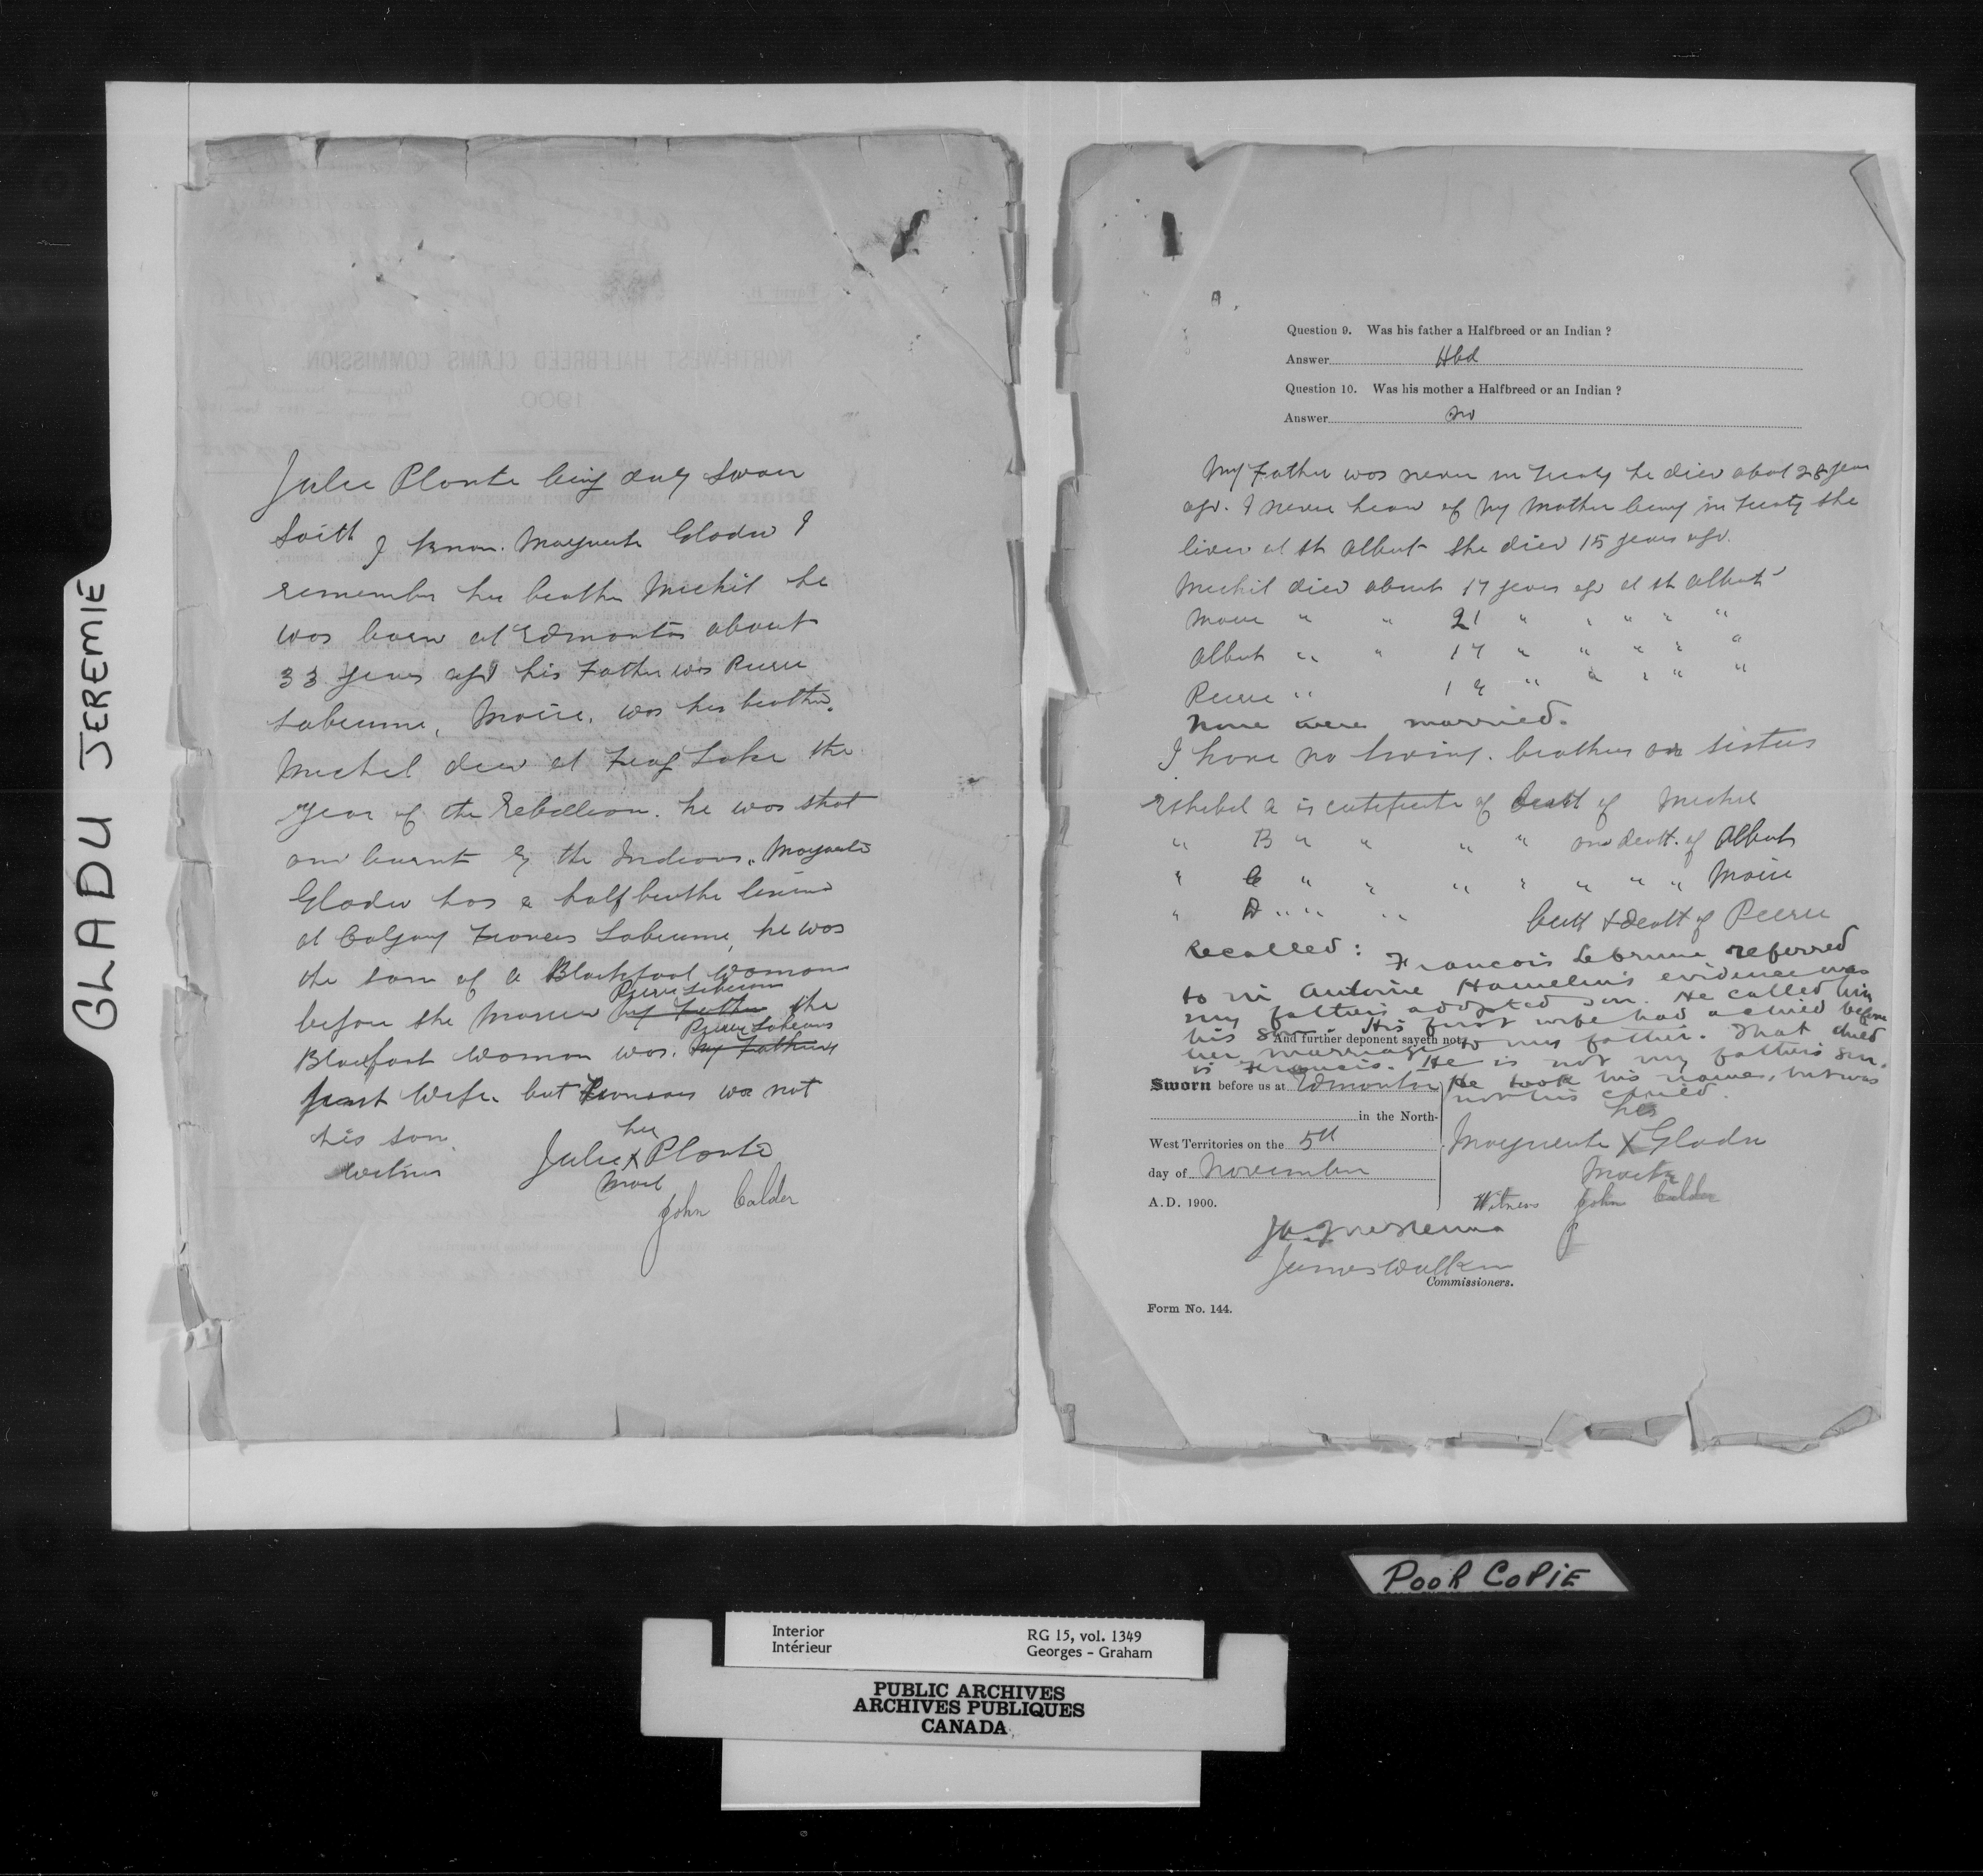 GLADU JEREMIE
Julie Plante being duly sworn
Saith I know Marguerite Gladu I
remember her brother Michel he
was born at Edmonton about
33 years ago his Father was Pierre
Labrume, Marie was his brother.
Michel died at Frog Lake the
year of the Rebellion. he was shot
and burnt by the Indians. Marguerite
Gladu has a half brother living
at Calgary Francis Labrume, he was
the son of a Blackfoot Woman
before she married my Father Pierre Labrume the
Blackfoot Woman was my Fathers Pierre Labrume
first Wife but Francois was not
his son
Witness
her
Julie X Plante
Mark
John Calder
Question 9. Was his father a Halfbreed or an Indian ?
Answer Hbd
Question 10. Was his mother a Halfbreed or an Indian ?
Answer
My Father was never in treaty he died about 28 years
ago. I never hear of my mother being in treaty she
lived at St Albert she died 15 years ago.
Michil died about 17 years ago at St Albert
Marie " " 21 " " " " "
Albert " " 17 " " " " "
Pierre " " " " " "
None were married.
I have no living brothers or sisters
Exhibit A is certificate of of Michel
" B " " " " and death of Albert
" C " " " " " " " Marie
" D " " " birth & death of Pierre
Recalled: Francois Lebrume referred
to in Antoine Hamelin's evidence was
my father's adopted son. He called him
his son. His first wife had a child before
And further deponent sayeth not.
her marriage to my father. That child
is Francis. He is not my father's son.
He took his name, but was
not his child.
Sworn before us at Edmonton
in the North-
West Territories on the 5th
day of November
A.D. 1900.
her
Marguerite X Gladu
Mark
Witness John Calder
James Walker
Commissioners.
Form No. 144.
POOR COPIE
Interior
Intérieur
RG 15, vol. 1349
Georges - Graham
PUBLIC ARCHIVES
ARCHIVES PUBLIQUES
CANADA